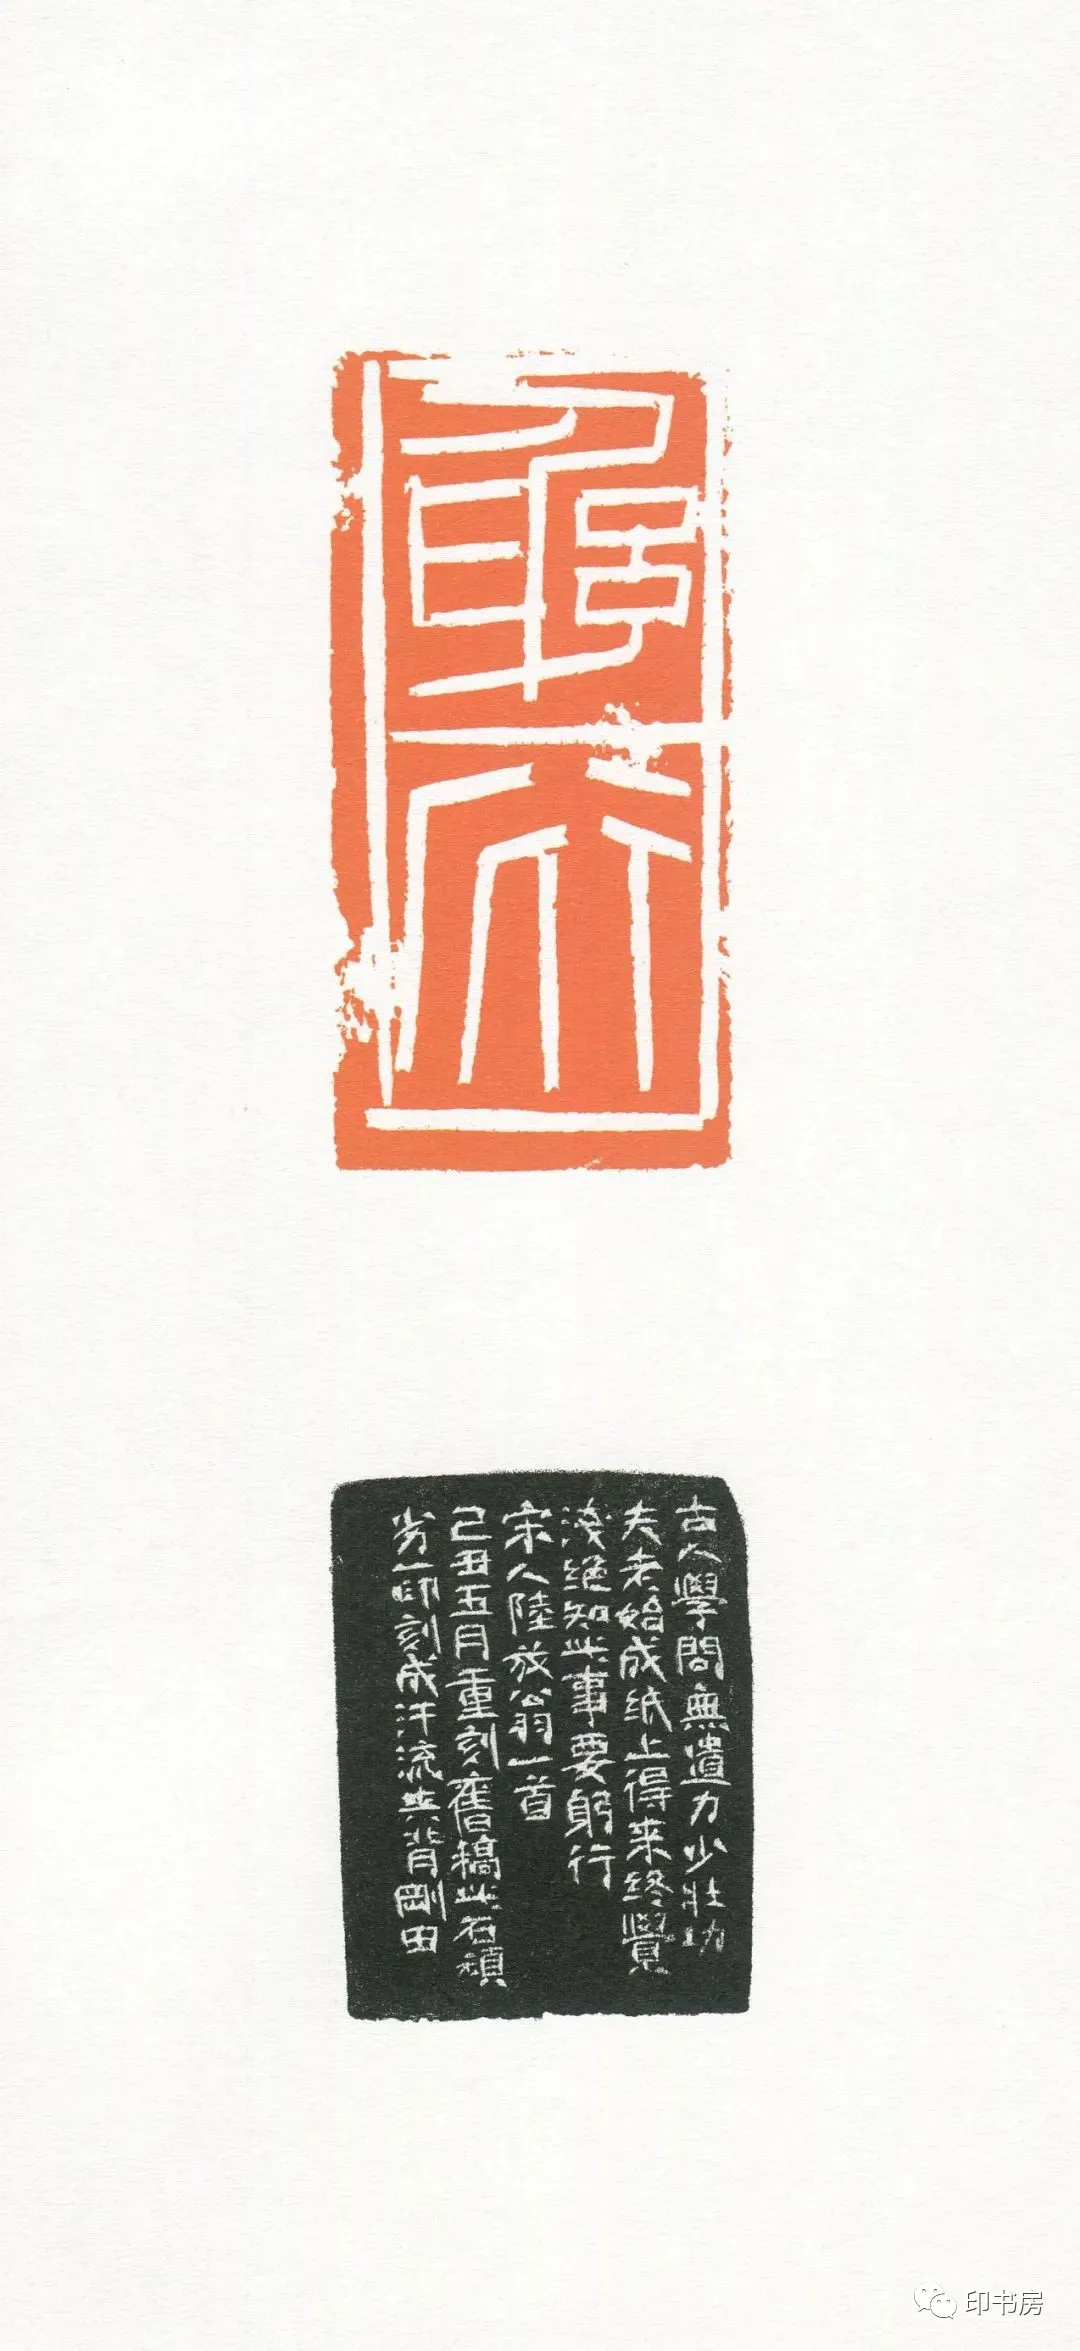 躬行
古人學問無遺力少壯功
夫老始成纸上得来终覺
淺绝知此事要躬行
宋人陸放翁一首
己丑五月重刻舊稿此石頑
劣一印刻成汗流背剛田
印书房